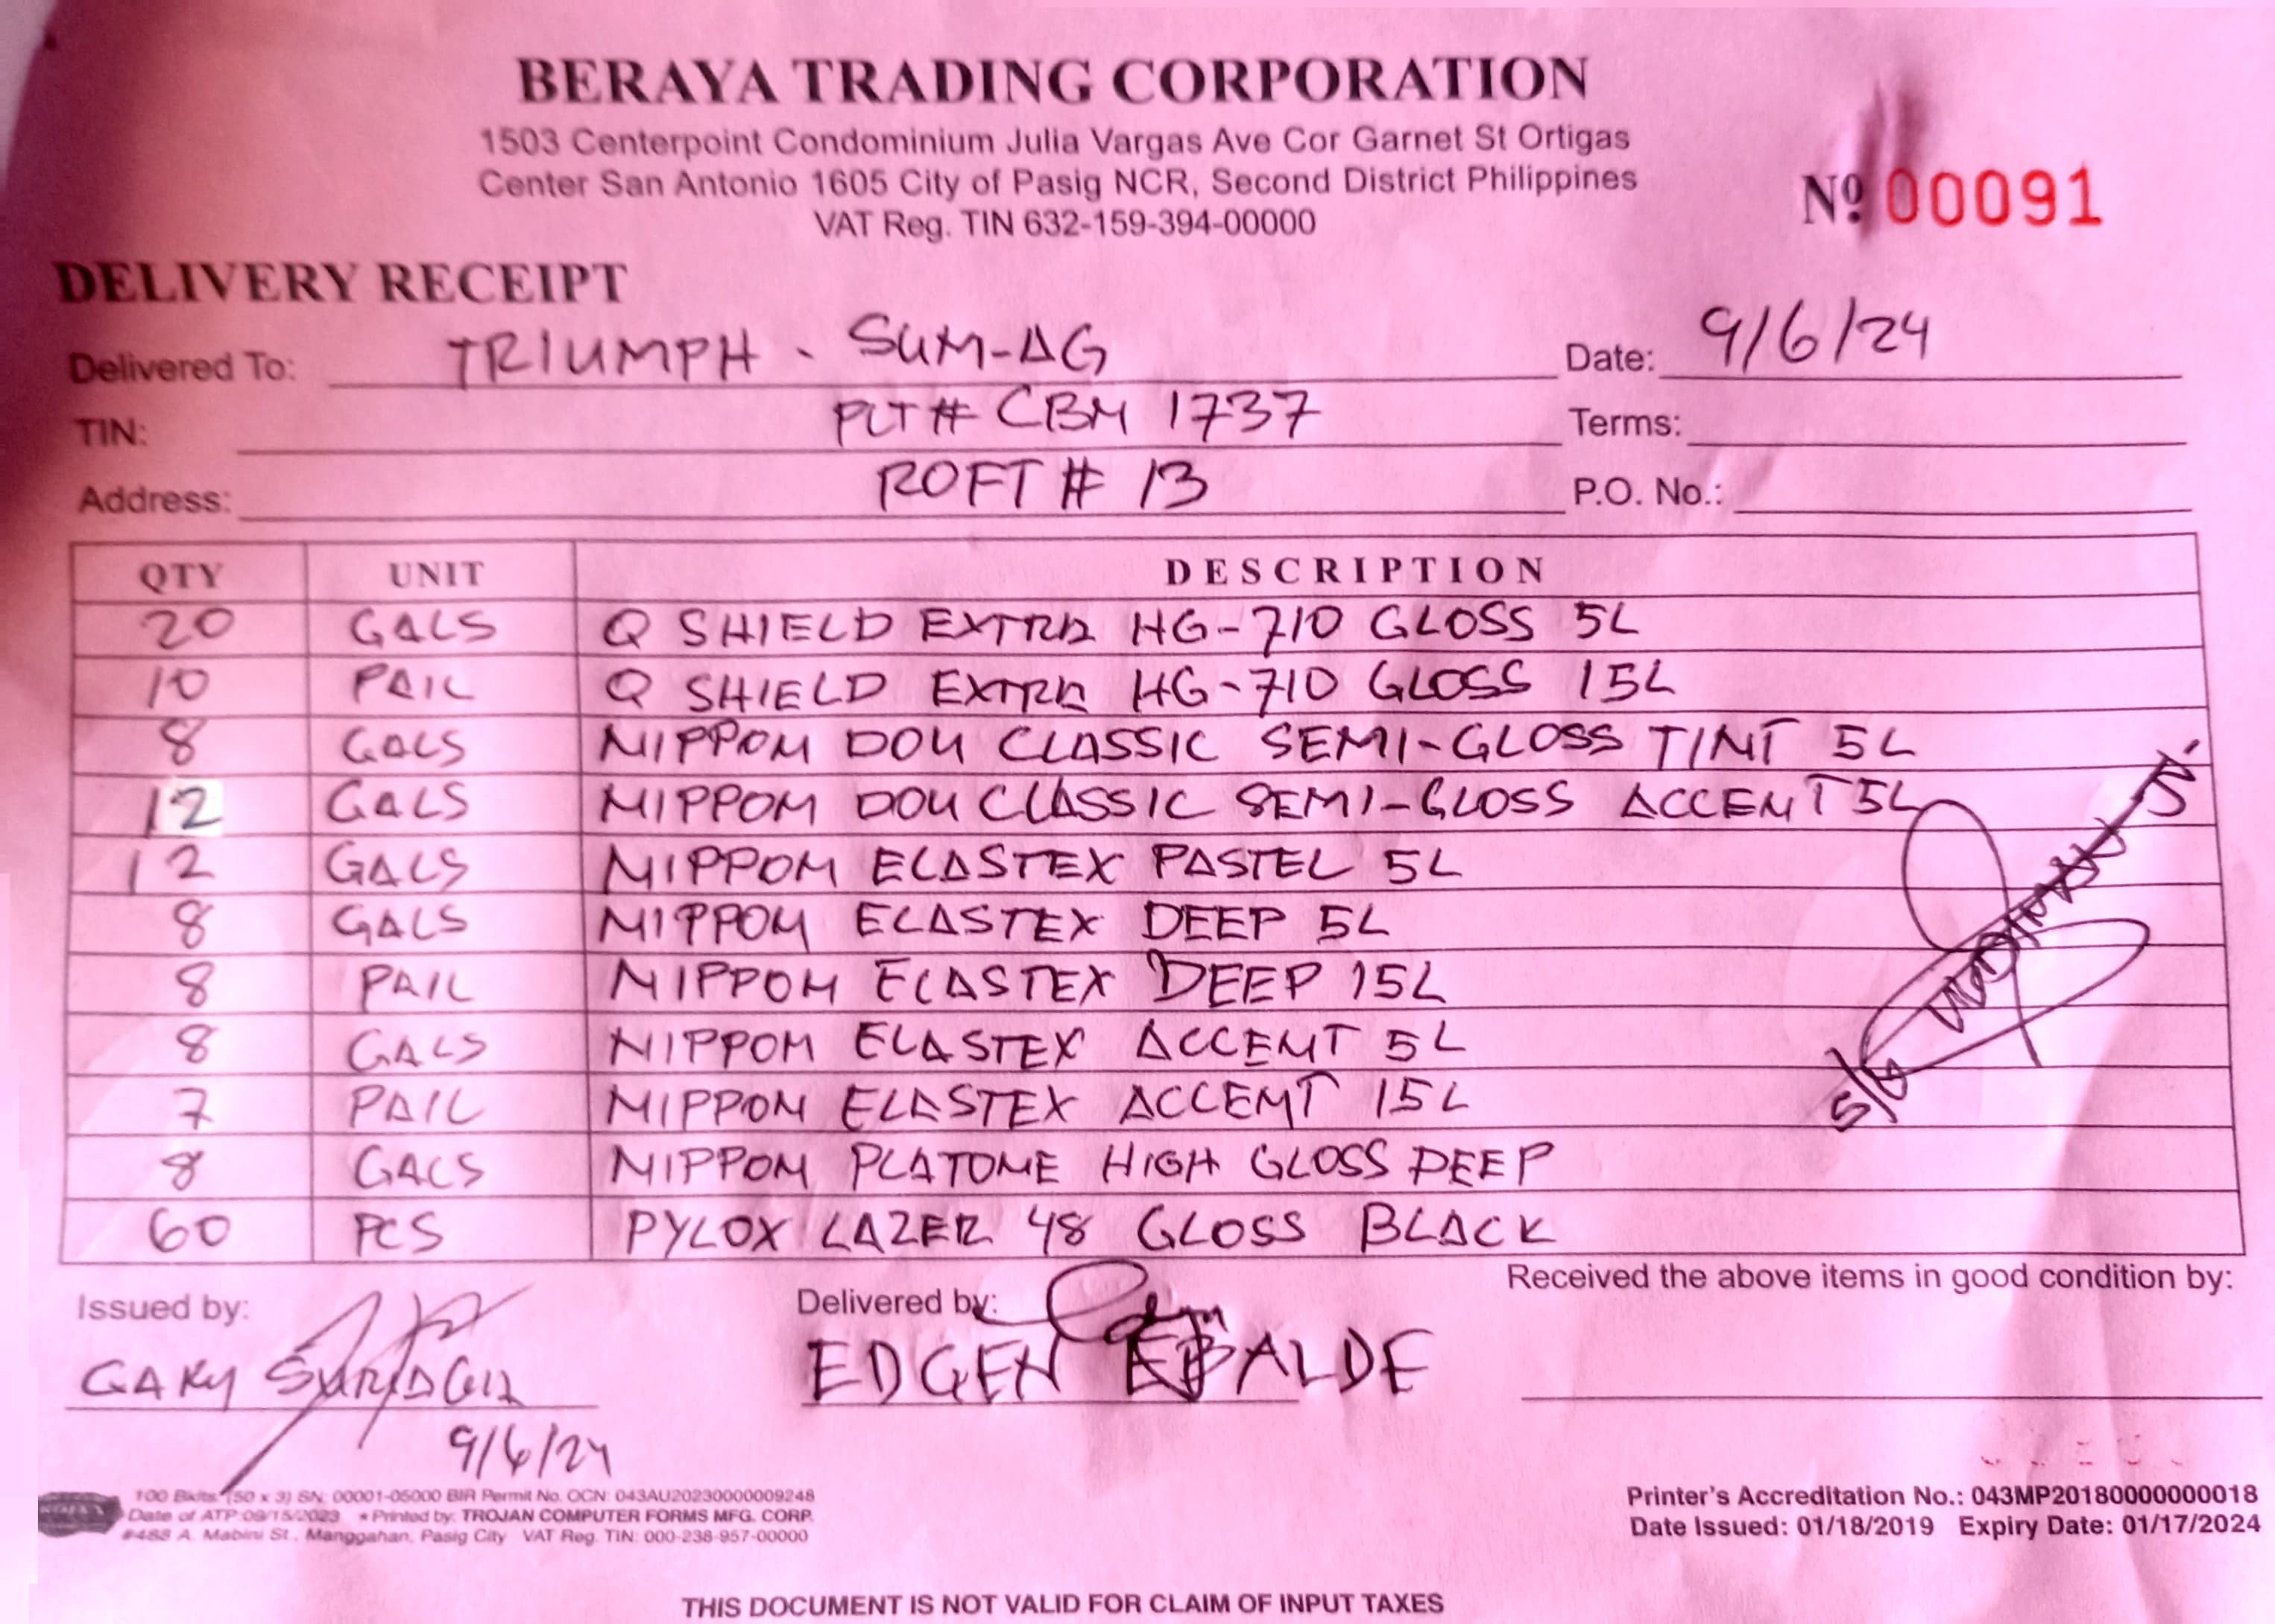 BERAYA TRADING CORPORATION
1503 Centerpoint Condominium Julia Vargas Ave Cor Garnet St Ortigas
Center San Antonio 1605 City of Pasig NCR, Second District Philippines
VAT Reg. TIN 632-159-394-00000
Nº 00091
DELIVERY RECEIPT
Delivered To: TRIUMPH - SUM-AG Date: 9/6/24
TIN: PLT# CBM 1737 Terms:
Address: ROFT # 13 P.O. No.:
QTY UNIT DESCRIPTION
20 GALS Q SHIELD EXTRA HG-710 GLOSS 5L
10 PAIL Q SHIELD EXTRA HG-710 GLOSS 15L
8 GALS NIPPON DOU CLASSIC SEMI-GLOSS TINT 5L
12 GALS NIPPON DOU CLASSIC SEMI-GLOSS ACCENT 5L
12 GALS NIPPON ELASTEX PASTEL 5L
8 GALS NIPPON ELASTEX DEEP 5L
8 PAIL NIPPON ELASTEX DEEP 15L
8 GALS NIPPON ELASTEX ACCENT 5L
7 PAIL NIPPON ELASTEX ACCENT 15L
8 GALS NIPPON PLATONE HIGH GLOSS DEEP
60 PCS PYLOX LAZER 48 GLOSS BLACK
Issued by: Delivered by: Received the above items in good condition by:
GARY EDGEN EBALDE
9/6/24
100 Bklts. (50 x 3) SN: 00001-05000 BIR Permit No. OCN: 043AU20230000009248
Date of ATP 09/15/2023 * Printed by: TROJAN COMPUTER FORMS MFG. CORP.
#488 A. Mabini St., Manggahan, Pasig City VAT Reg. TIN: 000-238-957-00000
Printer's Accreditation No.: 043MP20180000000018
Date Issued: 01/18/2019 Expiry Date: 01/17/2024
THIS DOCUMENT IS NOT VALID FOR CLAIM OF INPUT TAXES